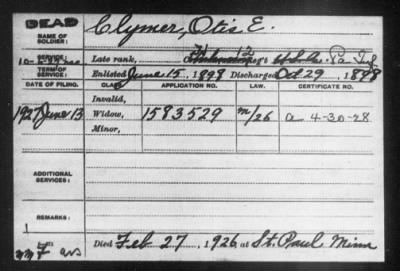 DEAD
NAME OF SOLDIER: Clymer, Otis E.
SERVICE: Late rank, H 12 Pa Inf
TERM OF SERVICE: Enlisted June 15, 1898 Discharged Oct 29, 1898
DATE OF FILING. CLASS. APPLICATION NO. LAW. CERTIFICATE NO.
Invalid,
1927 June 13 Widow, 1583529 m/26 a 4-30-28
Minor,
ADDITIONAL SERVICES:
REMARKS:
Died Feb 27, 1926 at St. Paul Minn